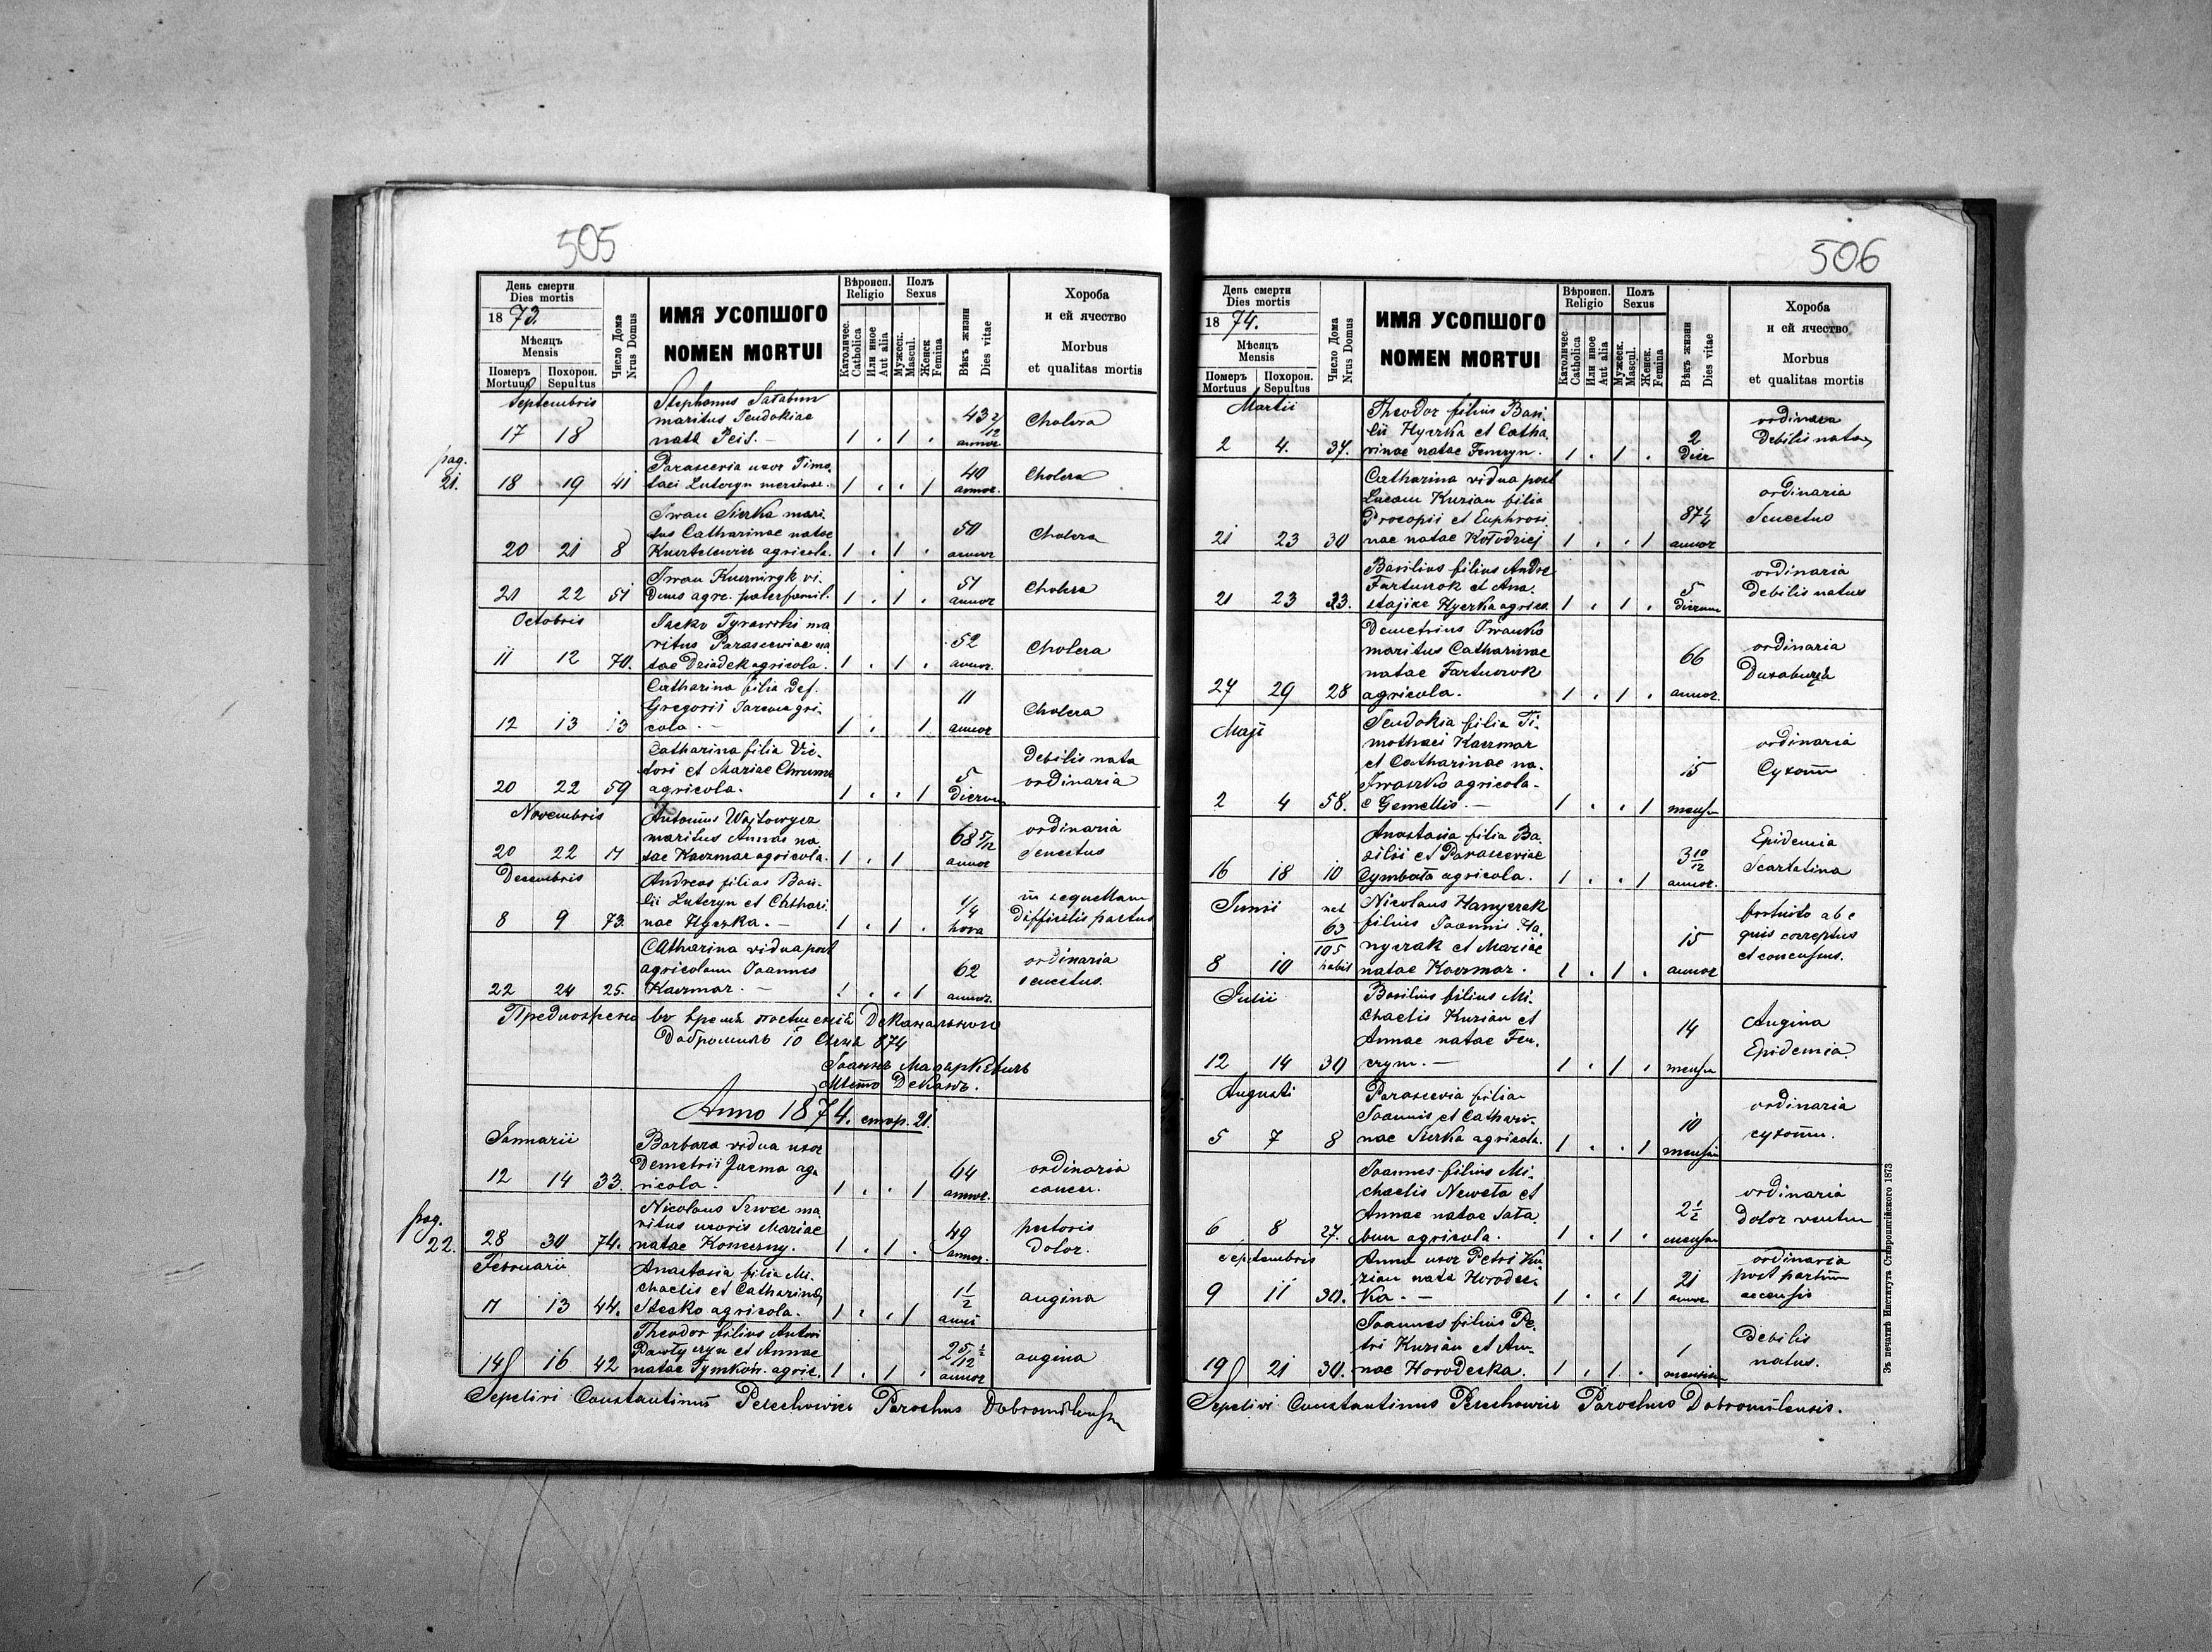 505
День смерти
Dies mortis
18 73.
Мѣсяцъ
Mensis
Померъ
Mortuus
Похорон.
Sepultus
Число Дома
Nrus Domus
ИМЯ УСОПШОГО
NOMEN MORTUI
Вѣроисп.
Religio
Католичес.
Catholica
Или иное
Aut alia
Полъ
Sexus
Мужеск.
Mascul.
Женск
Femina
Вѣкъ жизни
Dies vitae
Хороба
и ей ячество
Morbus
et qualitas mortis
Septembris
Stephanus Satabun
maritus Eudokiae
17 18 natae Peis. — 1 . 1 . 43 2/12 annor Cholera
pag.
21.
Parascevia uxor Timo.
18 19 41 taei Luteryn 1 . . 1 40 annor. Cholera
Iwan Sierka mari.
tus Catharinae natae
20 21 8 agricola. 1 . 1 . 50 annor Cholera
Iwan vi.
21 22 51 duus agr. paterfamil. 1 . 1 . 51 annor Cholera
Octobris
Sacko Tyrawski ma
ritus Parasceviae na
11 12 70. tae Dziadek agricola. 1 . 1 . 52 annor. Cholera
Catharina filia Def.
Gregorii Jarema gri-
12 13 13 cola — 1 . 1 11 annor Cholera
Catharina filia Vic
tori et Mariae
20 22 59 agricola. 1 . . 1 5 dierum Debilis nata
ordinaria
Novembris
Antonius Wojtowycz
maritus Annae na
20 22 11 tae Kaczmar agricola. 1 . 1 68 5/12 annor ordinaria
Senectus
Decembris
Andreas filius Basi.
lii Luteryn et Cathari
8 9 73. nae Hyczka. — 1 . 1 . 1/4 hora in sequellam
difficilis partus
Catharina vidua post
agricolam Joannes
22 24 25. Kaczmar. — 1 . . 1 62 annor. ordinaria
senectus.
во время Деканального
Добромиль 10 874
Іоаннъ
Деканъ.
Anno 1874. стор. 21.
Januarii
Barbara vidua uxor
Demetrii Jacma ag
12 14 33. ricola. 1 . . 1 64 annor. ordinaria
cancer.
pag.
22.
Nicolaus Szwec ma
ritus uxoris Mariae
28 30 74. natae Koneczny. 1 . 1 . 49 annor. pectoris
dolor.
Februarii
Anastasia filia Mi-
chaelis et Catharinae
11 13 44. Stecko agricola. 1 . . 1 1 1/2 anni angina
Theodor filius Antoni
Pawłyczyn et Annae
14 16 42 natae Tymkow. agric. 1 . 1 . 2 5 1/2 /12 annor angina
Sepelivi Constantinus Pelechowicz Parochus Dobromilensis
506
День смерти
Dies mortis
18 74.
Мѣсяцъ
Mensis
Померъ
Mortuus
Похорон.
Sepultus
Число Дома
Nrus Domus
ИМЯ УСОПШОГО
NOMEN MORTUI
Вѣроисп.
Religio
Католичес
Catholica
Или иное
Aut alia
Полъ
Sexus
Мужеск.
Mascul.
Женск.
Femina
Вѣкъ жизни
Dies vitae
Хороба
и ей ячество
Morbus
et qualitas mortis
Martii
Theodor filius Basi.
lii Hyczka et Catha.
2 4. 37. rinae natae Fenczyn. 1 . 1 . 2 Dier ordinaria
Debilis natus
Catharina vidua post
Lucam Kuzian filia
Procopii et Euphrosi
21 23 30 nae natae Kołodziej 1 . . 1 87 1/4 annor ordinaria
Senectus
Basilius filius Andre
Fartuszok et Ana.
21 23 33. staziae Hyczka agrico. 1 . 1 . 5 dierum ordinaria
Debilis natus
Demetrius Iwanko
maritus Catharinae
natae Fartuszok
27 29 28 agricola. 1 . 1 . 66 annor. ordinaria
Maji
Eudokia filia Ti.
mothaei Kaczmar
et Catharinae na.
Iwaszko agricola.
2 4 58. e Gemellis. — 1 . . 1 15 mensu ordinaria
Anastasia filia Ba
silii et Parasceviae
16 18 10 Cymbała agricola. 1 . . 1 3 10/12 annor. Epidemia
Scarlatina
Junii
nat 63
105 habit
Nicolaus Hanyczak
filius Joannis Ha.
nyczak et Mariae
8 10 natae Kaczmar. 1 . 1 . 15 annor fortuito ab e
quis correptus
et concussus.
Julii
Basilius filius Mi.
chaelis Kuzian et
Annae natae Fen.
12 14 30 czyn. — 1 . 1 . 14 mensu Angina
Epidemia
Augusti
Parascevia filia
Joannis et Cathari-
5 7 8 nae Sierka agricola. 1 . . 1 10 mensium ordinaria
Joannes filius Mi.
chaelis Neweła et
Annae natae Sata.
6 8 27. bun agricola. 1 . 1 . 2 1/2 mensu ordinaria
dolor ventru
Septembris
Anna uxor Petri Ku
zian nata Horodec.
9 11 30. ka. — 1 . . 1 21 annor ordinaria
post partum
Joannes filius Pe.
tri Kuzian et An-
19 21 30. nae Horodecka. 1 . 1 . 1 mensium Debilis
natus.
Sepelivi Constantinus Pelechowicz Parochus Dobromilensis.
Зъ печатнѣ Института Ставропигійского 1873